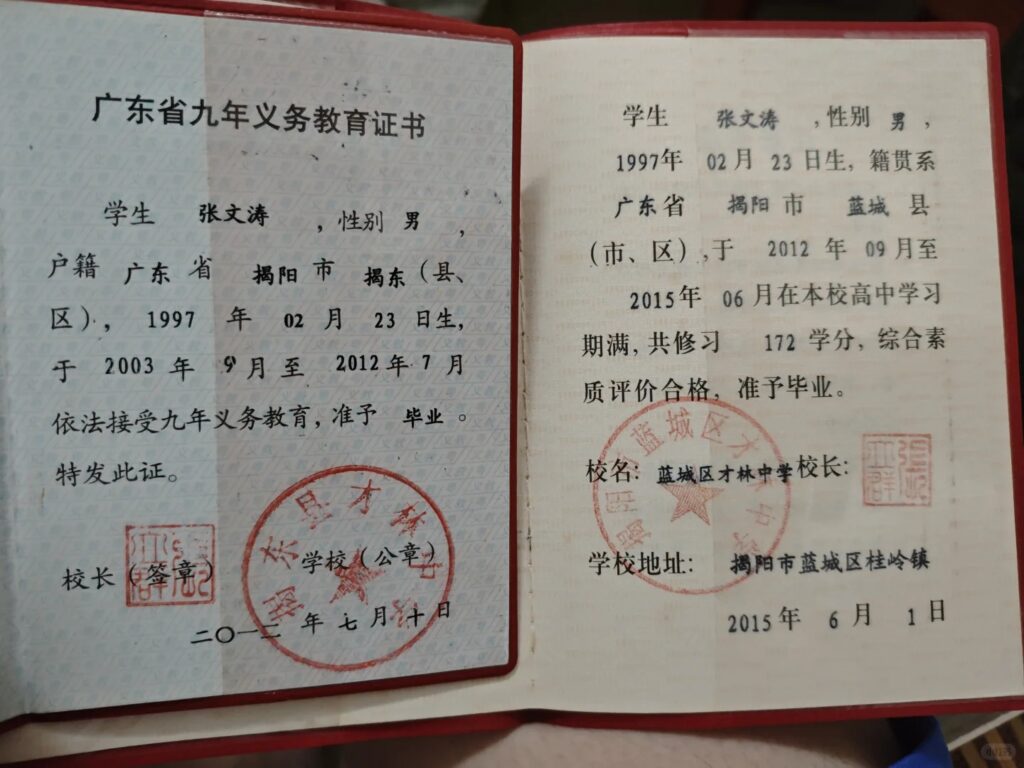 广东省九年义务教育证书
学生 张文涛 ，性别 男 ，
户籍 广东 省 揭阳 市 揭东（县、
区），1997 年 02 月 23 日生，
于 2003 年 9 月至 2012 年 7 月
依法接受九年义务教育，准予 毕业 。
特发此证。
揭东县才林中学
校长（签章） 学校（公章）
二〇一二 年 七 月 十 日
学生 张文涛 ，性别 男 ，
1997年 02 月 23 日生，籍贯系
广东 省 揭阳 市 蓝城 县
（市、区），于 2012 年 09 月至
2015 年 06 月在本校高中学习
期满，共修习 172 学分，综合素
质评价合格，准予毕业。
揭阳市蓝城区才林中学
校名：蓝城区才林中学 校长：
学校地址：揭阳市蓝城区桂岭镇
2015 年 6 月 1 日